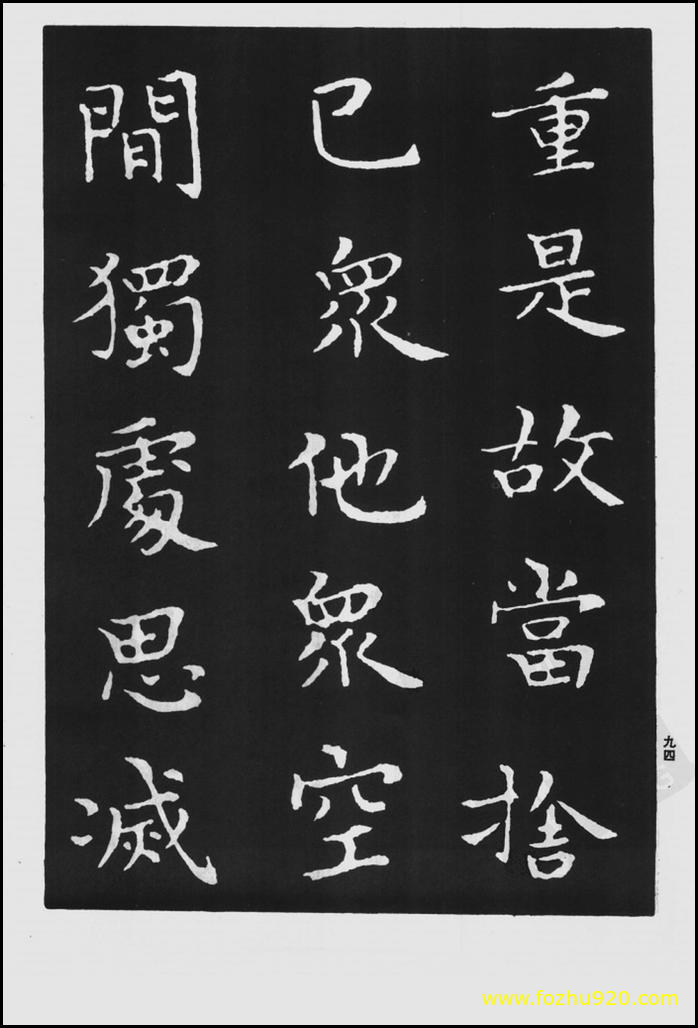 重是故當捨
已衆他衆空
間獨處思滅
九四
www.fozhu920.com